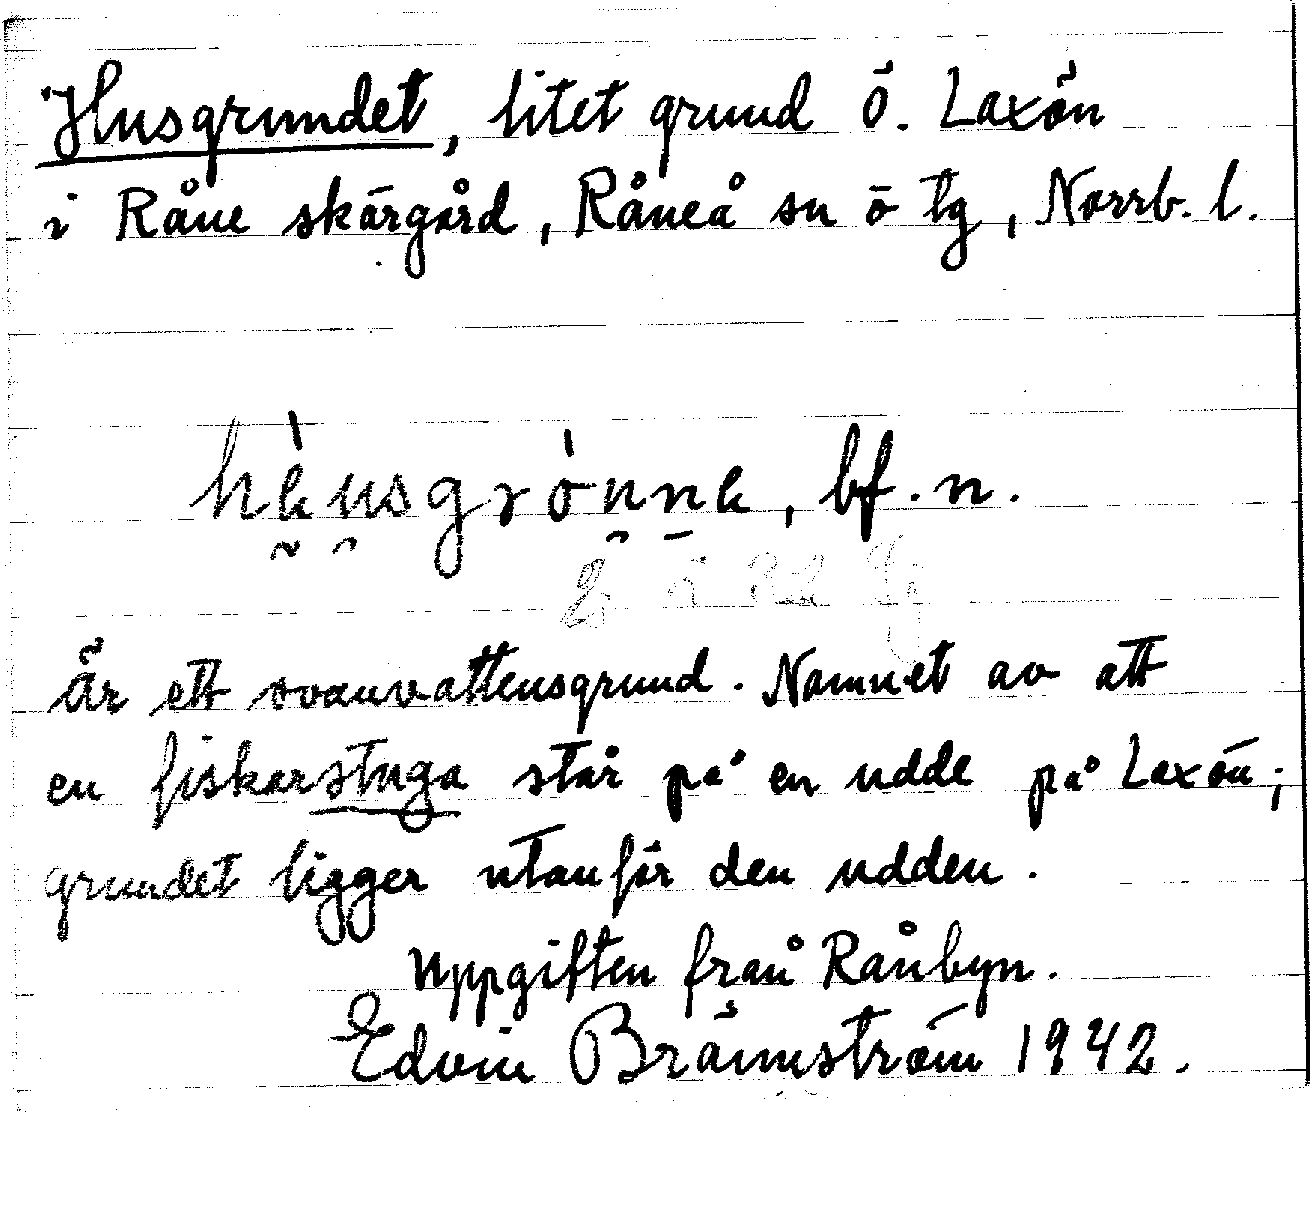 Husgrundet, litet grund ö. Laxön
i Råne skärgård, Råneå sn ö tg, Norrb. l.
bf. n.
Är ett ovanvattensgrund. Namnet av att
en fiskarstuga står på en udde på Laxön;
grundet ligger utanför den udden.
Uppgiften från Rånbyn.
Edvin Brännström 1942.